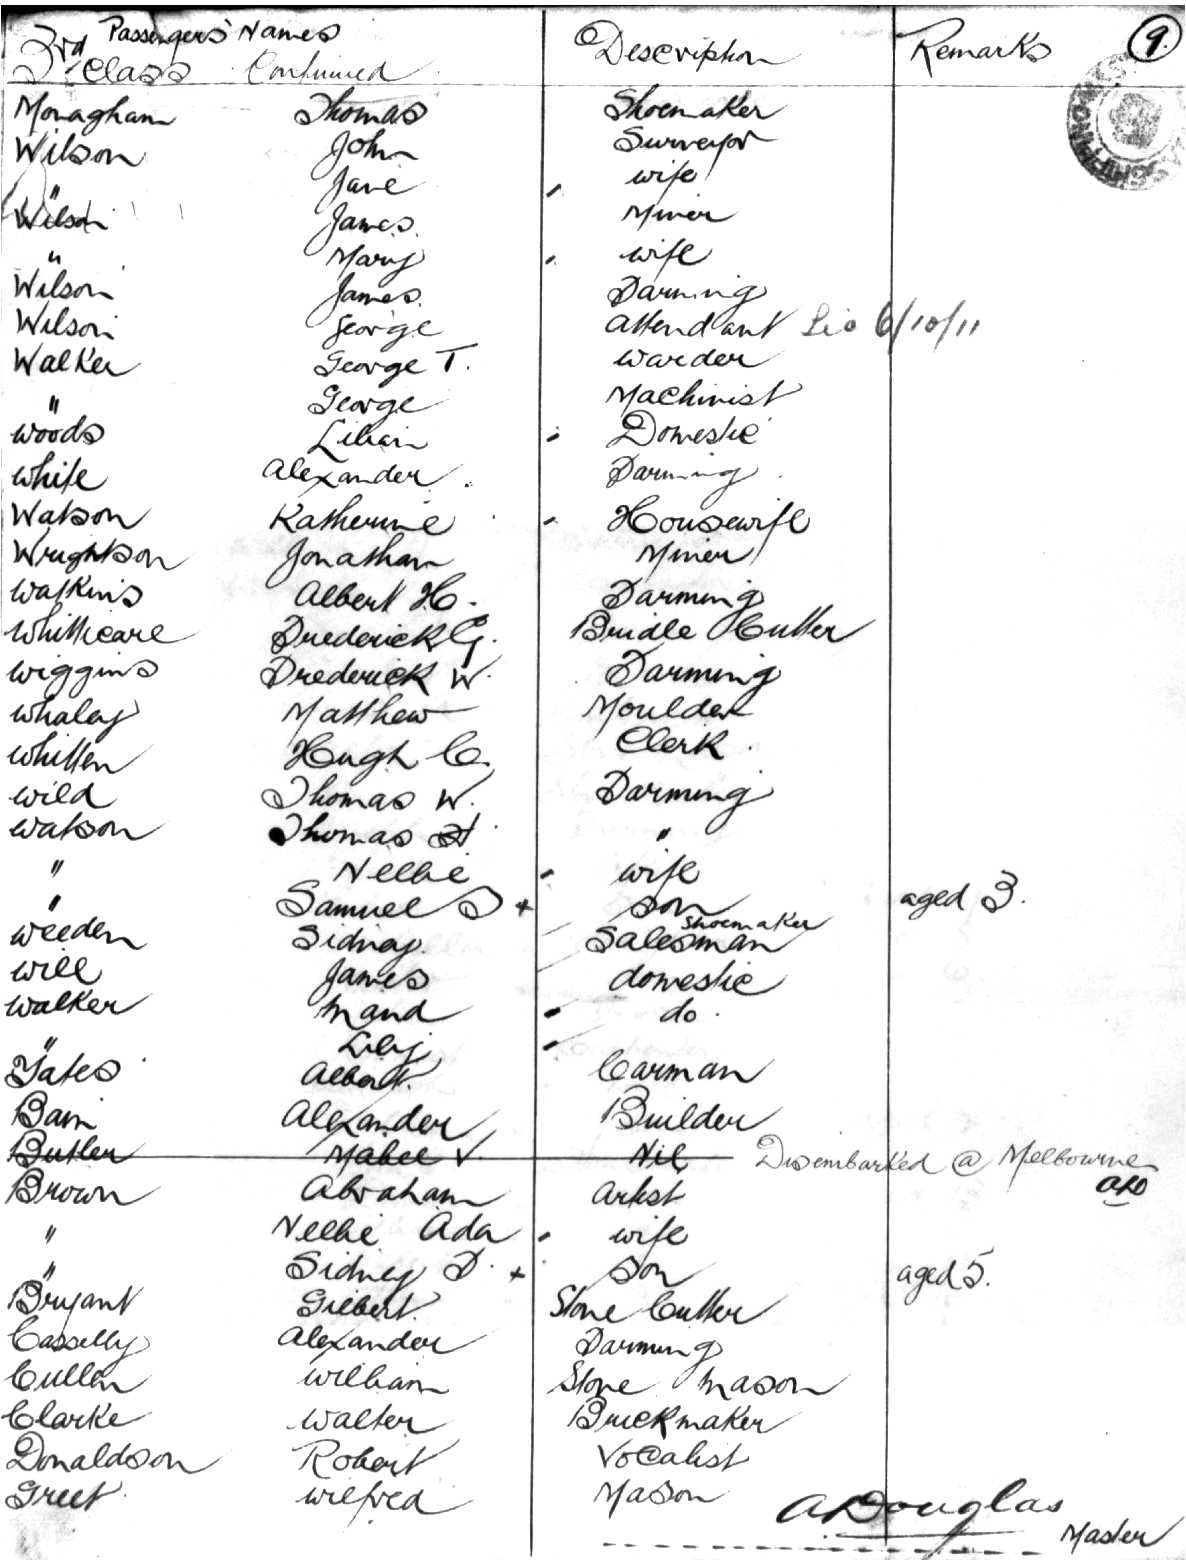 Passengers' Names Description Remarks 9.
3rd Class Continued
Monagham Thomas Shoemaker
Wilson John Surveyor
" Jane wife
Wilson James Miner
" Mary wife
Wilson James Farming
Wilson George attendant 6/10/11
Walker George T. Warder
" George Machinist
Woods Lilian Domestic
White Alexander Farming
Watson Katherine Housewife
Wrightson Jonathan Miner
Watkins Albert H. Farming
Whitticare Frederick G. Bridle Cutter
Wiggins Frederick W. Farming
Whaley Matthew Moulder
Whitten Hugh C. Clerk
Wild Thomas W. Farming
Watson Thomas H "
" Nellie wife
" Samuel S + son aged 3.
Weeden Sidney Shoemaker Salesman
Will James domestic
Walker Maud do.
" Lily
Yates Albert Carman
Bain Alexander Builder
Butler Mabel V. Nil Disembarked @ Melbourne
Brown Abraham Artist
" Nellie Ada wife
" Sidney D. + Son aged 5.
Bryant Gilbert Stone Cutter
Casselly Alexander Farming
Cullen William Stone Mason
Clarke Walter Brickmaker
Donaldson Robert Vocalist
Greet Wilfred Mason
A Douglas
Master